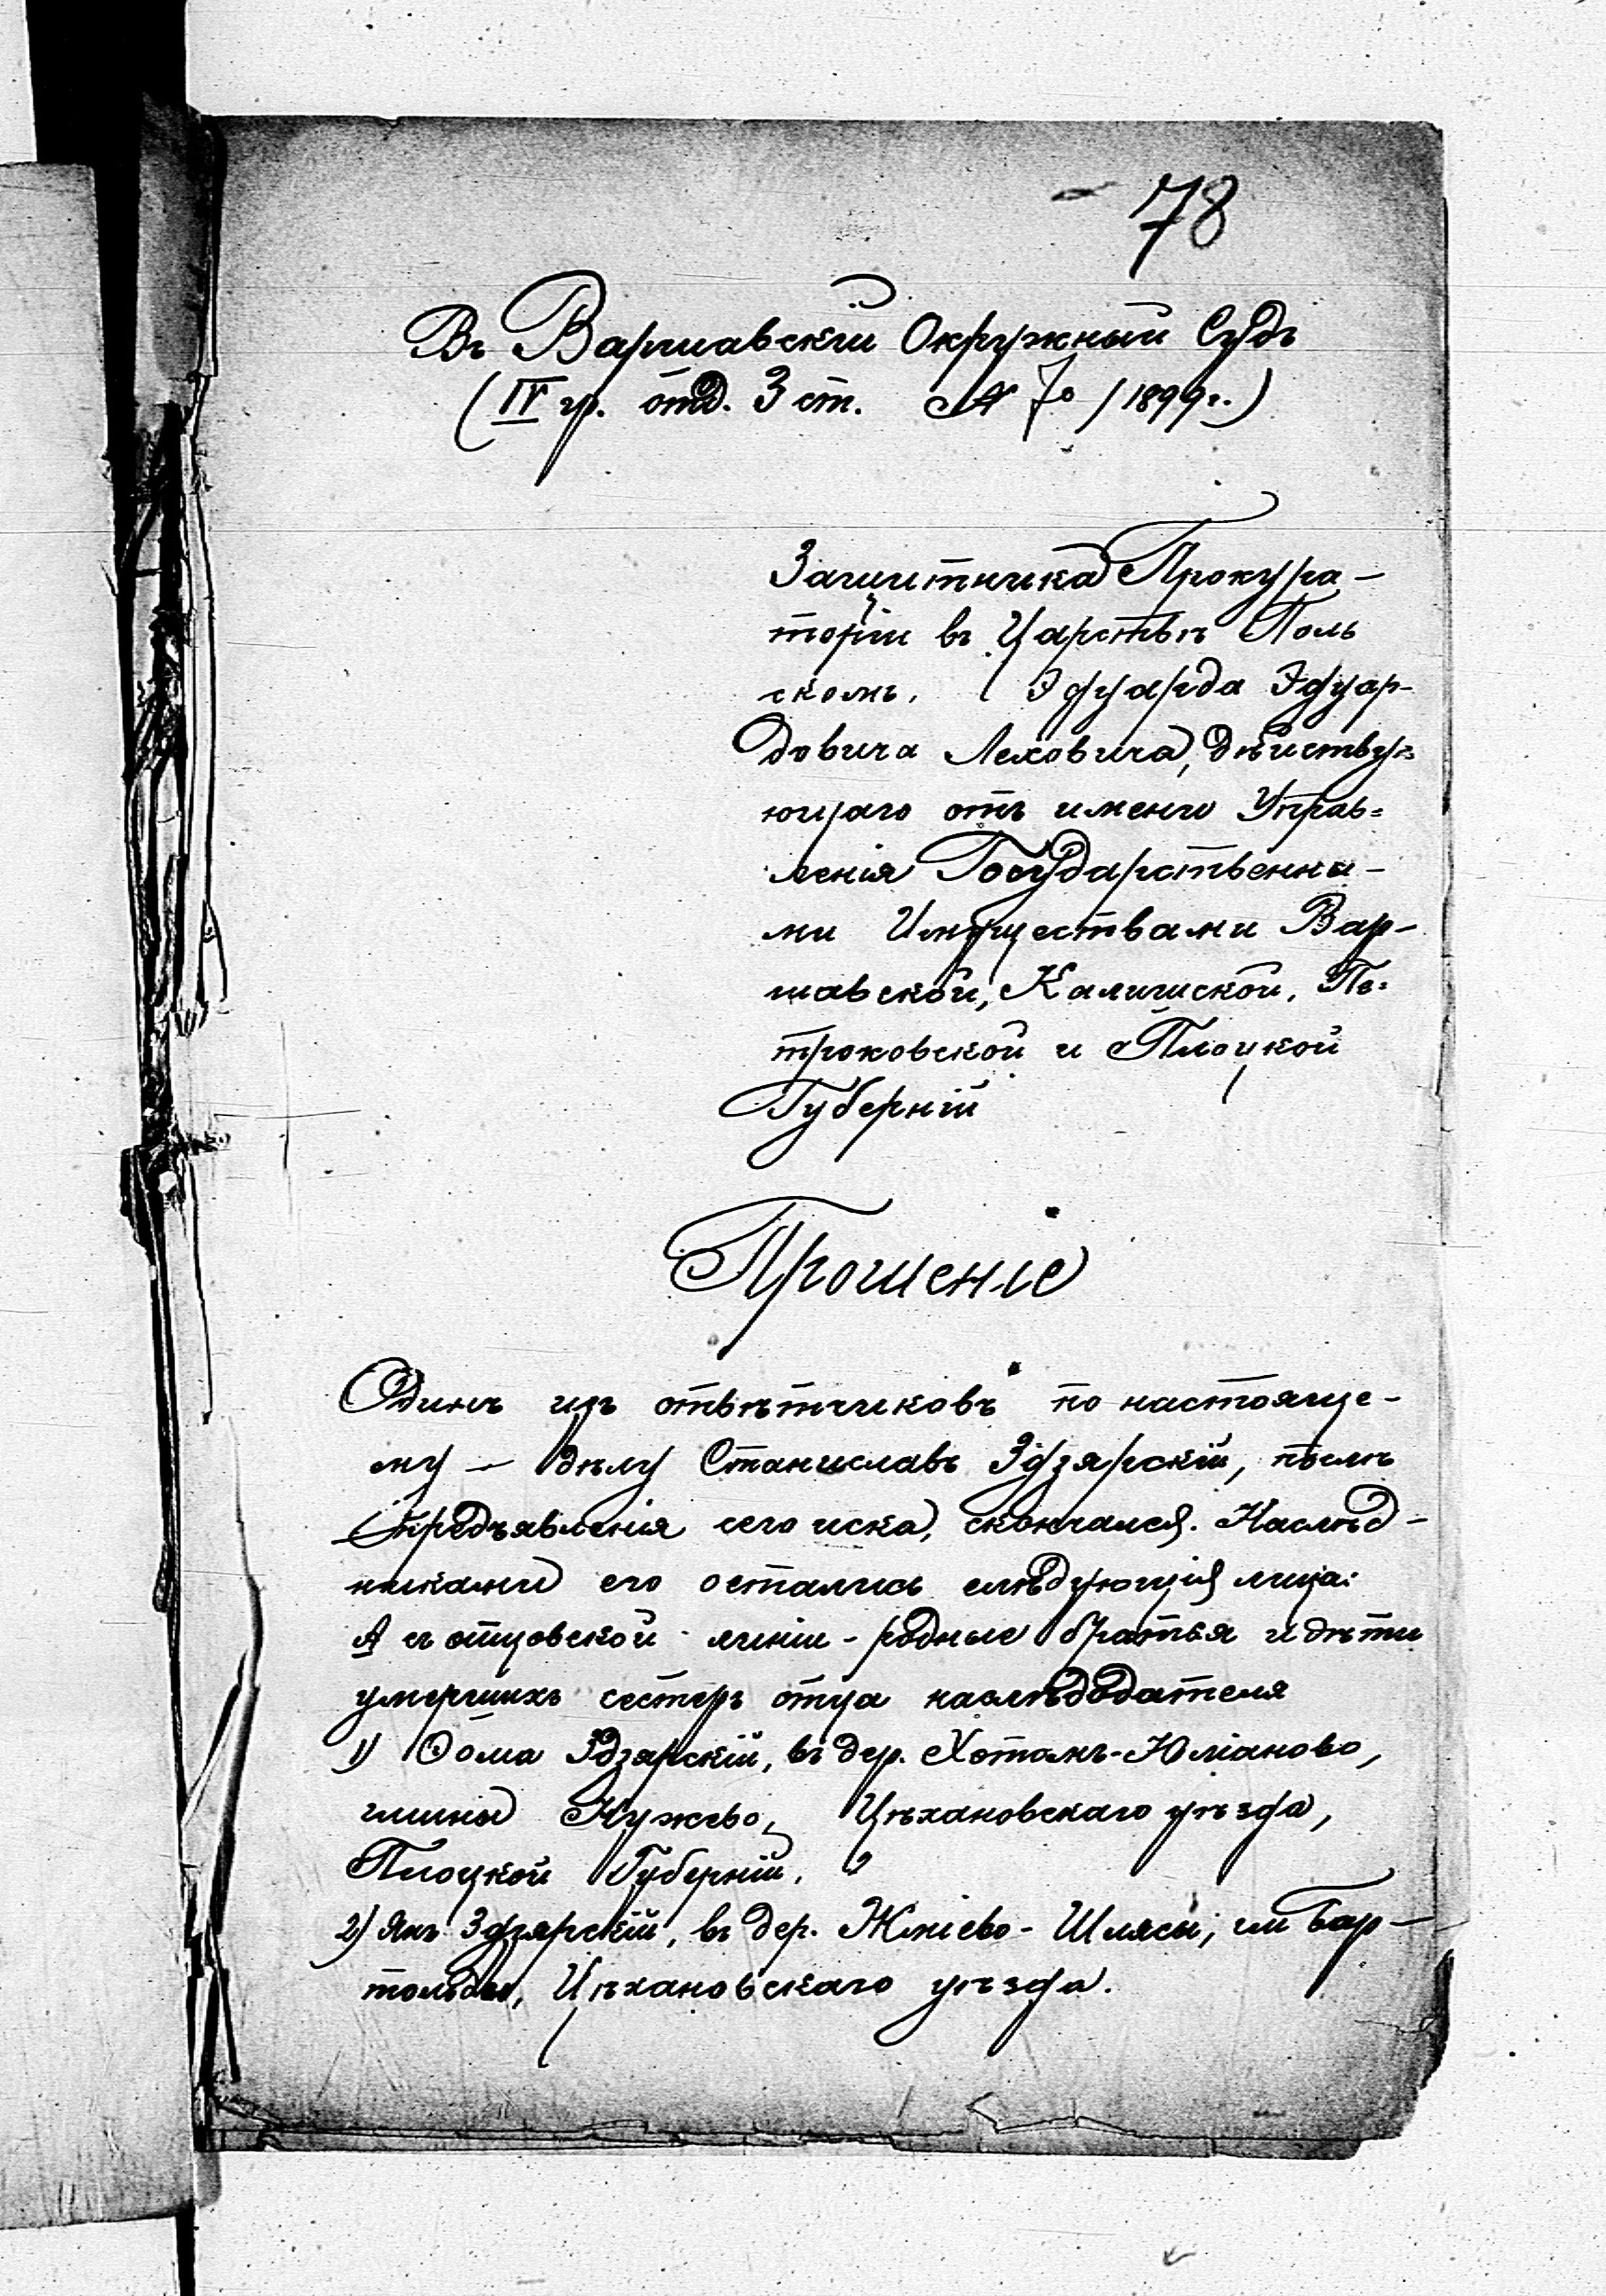 78
Въ Варшавскій Окружный Судъ
(IV гр. отд. 3 ст. № 70 / 1899 г.)
Защитника Прокура-
торіи въ Царствѣ Поль
скомъ. Эдуарда Эдуар-
довича Леховича, дѣйству=
ющаго отъ имени Управ=
ленія Государственны-
ми Имуществами Вар-
шавской, Калишской, Пе=
троковской и Плоцкой
Губерній
Прошеніе
Одинъ изъ отвѣтчиковъ по настояще-
му — дѣлу Станиславъ Здзярскій, послѣ
предъявленія сего иска, скончался. Наслѣд-
никами его остались слѣдующія лица:
А съ отцовской линіи - родные братья и дѣти
умершихъ сестеръ отца наслѣдодателя
1) Ѳома Здзярскій, въ дер. Хотомъ-Юліаново,
гмины Нужево, Цѣхановскаго уѣзда,
Плоцкой Губерніи.
2) Янъ Здзярскій, въ дер. Жміево - Шлясы, гм Бар-
тольды, Цѣхановскаго уѣзда.